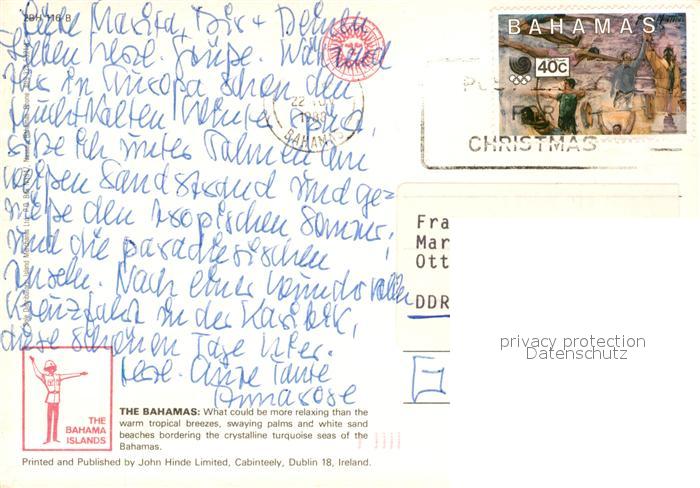 2BH 116 B
Liebe Marita, Dir + Deinen
lieben herzl. Grüße. Während
Ihr in Europa schon den
naßkalten Winter spürt,
sitze ich unter Palmen am
weißen Sandstrand und ge=
nieße den tropischen Sommer,
und die paradiesischen
Inseln. Nach einer wundervollen
Kreuzfahrt in der Karibik,
diese schönen Tage hier.
herzl. Tante
Annarose
BAHAMAS
40c
22 NOV
BAHAMAS
CHRISTMAS
Fra
Mar
Ott
DDR
privacy protection
Datenschutz
THE
BAHAMA
ISLANDS
THE BAHAMAS: What could be more relaxing than the
warm tropical breezes, swaying palms and white sand
beaches bordering the crystalline turquoise seas of the
Bahamas.
Printed and Published by John Hinde Limited, Cabinteely, Dublin 18, Ireland.